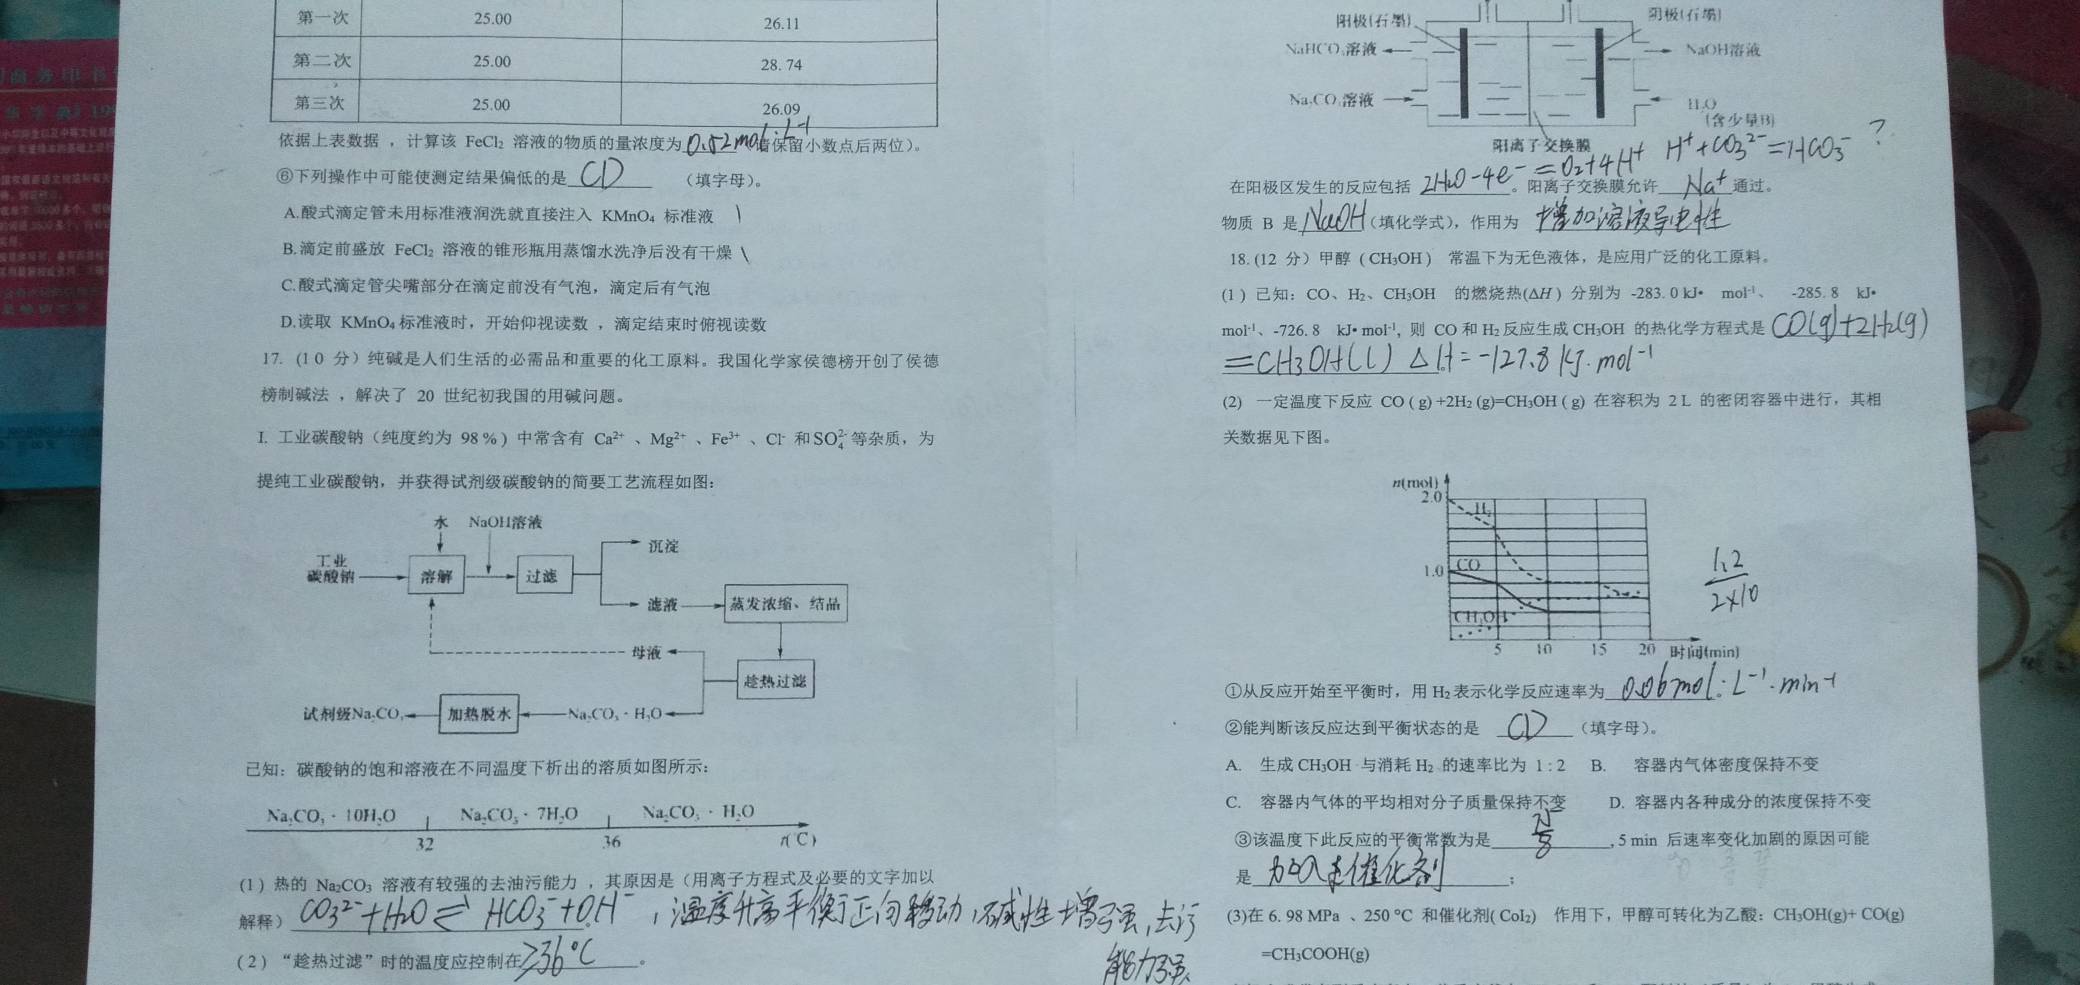 第一次 25.00 26.11
第二次 25.00 28.74
第三次 25.00 26.09
依据上表数据，计算该 FeCl₂ 溶液的物质的量浓度为 0.52mol·L⁻¹ 保留小数点后两位）。
⑥下列操作中可能使测定结果偏低的是 CD （填字母）。
A.酸式滴定管未用标准液润洗就直接注入 KMnO₄ 标准液
B.滴定前盛放 FeCl₂ 溶液的锥形瓶用蒸馏水洗净后没有干燥
C.酸式滴定管尖嘴部分在滴定前没有气泡，滴定后有气泡
D.读取 KMnO₄标准液时，开始仰视读数，滴定结束时俯视读数
17.（10 分）纯碱是人们生活的必需品和重要的化工原料。我国化学家侯德榜开创了侯德
榜制碱法，解决了 20 世纪初我国的用碱问题。
I. 工业碳酸钠（纯度约为 98%）中常含有 Ca²⁺、Mg²⁺、Fe³⁺、Cl⁻ 和SO₄²⁻等杂质，为
提纯工业碳酸钠，并获得试剂级碳酸钠的简要工艺流程如图：
水 NaOH溶液
工业
碳酸钠 溶解 过滤 沉淀
滤液 蒸发浓缩、结晶
母液 趁热过滤
试剂级Na₂CO₃ 加热脱水 Na₂CO₃·H₂O
已知：碳酸钠的饱和溶液在不同温度下析出的溶质如图所示：
Na₂CO₃·10H₂O Na₂CO₃·7H₂O Na₂CO₃·H₂O
32 36 t(℃)
(1）热的 Na₂CO₃ 溶液有较强的去油污能力，其原因是（用离子方程式及必要的文字加以
解释） CO₃²⁻+H₂O⇌HCO₃⁻+OH⁻，温度升高平衡正向移动，碱性增强，去污
能力强
(2）“趁热过滤”时的温度应控制在 ≥36℃ 。
阳极(石墨) 阴极(石墨)
NaHCO₃溶液 NaOH溶液
Na₂CO₃溶液 H₂O
(含少量B)
阳离子交换膜 H⁺+CO₃²⁻=HCO₃⁻ ?
在阳极区发生的反应包括 2H₂O-4e⁻=O₂+4H⁺ 。阳离子交换膜允许 Na⁺ 通过。
物质 B 是 NaOH（填化学式），作用为 增加溶液导电性
18.(12 分）甲醇（CH₃OH）常温下为无色液体，是应用广泛的化工原料。
(1）已知：CO、H₂、CH₃OH 的燃烧热(ΔH）分别为 -283.0 kJ• mol⁻¹、 -285.8 kJ•
mol⁻¹、-726.8 kJ•mol⁻¹, 则 CO 和 H₂反应生成 CH₃OH 的热化学方程式是 CO(g)+2H₂(g)
=CH₃OH(l) ΔH=-127.8kJ·mol⁻¹
(2) 一定温度下反应 CO（g)+2H₂(g)=CH₃OH（g) 在容积为 2 L 的密闭容器中进行，其相
关数据见下图。
n(mol)
2.0
H₂
1.0 CO
CH₃OH
5 10 15 20 时间(min)
1.2
2×10
①从反应开始至平衡时，用 H₂表示化学反应速率为 0.06mol·L⁻¹·min⁻¹
②能判断该反应达到平衡状态的是 CD （填字母）。
A. 生成 CH₃OH 与消耗 H₂ 的速率比为 1:2 B. 容器内气体密度保持不变
C. 容器内气体的平均相对分子质量保持不变 D. 容器内各种成分的浓度保持不变
③该温度下此反应的平衡常数为是 , 5 min 后速率变化加剧的原因可能
是 加入 催化剂 ；
(3)在 6.98 MPa、250 ℃ 和催化剂( CoI₂) 作用下，甲醇可转化为乙酸：CH₃OH(g)+ CO(g)
=CH₃COOH(g)